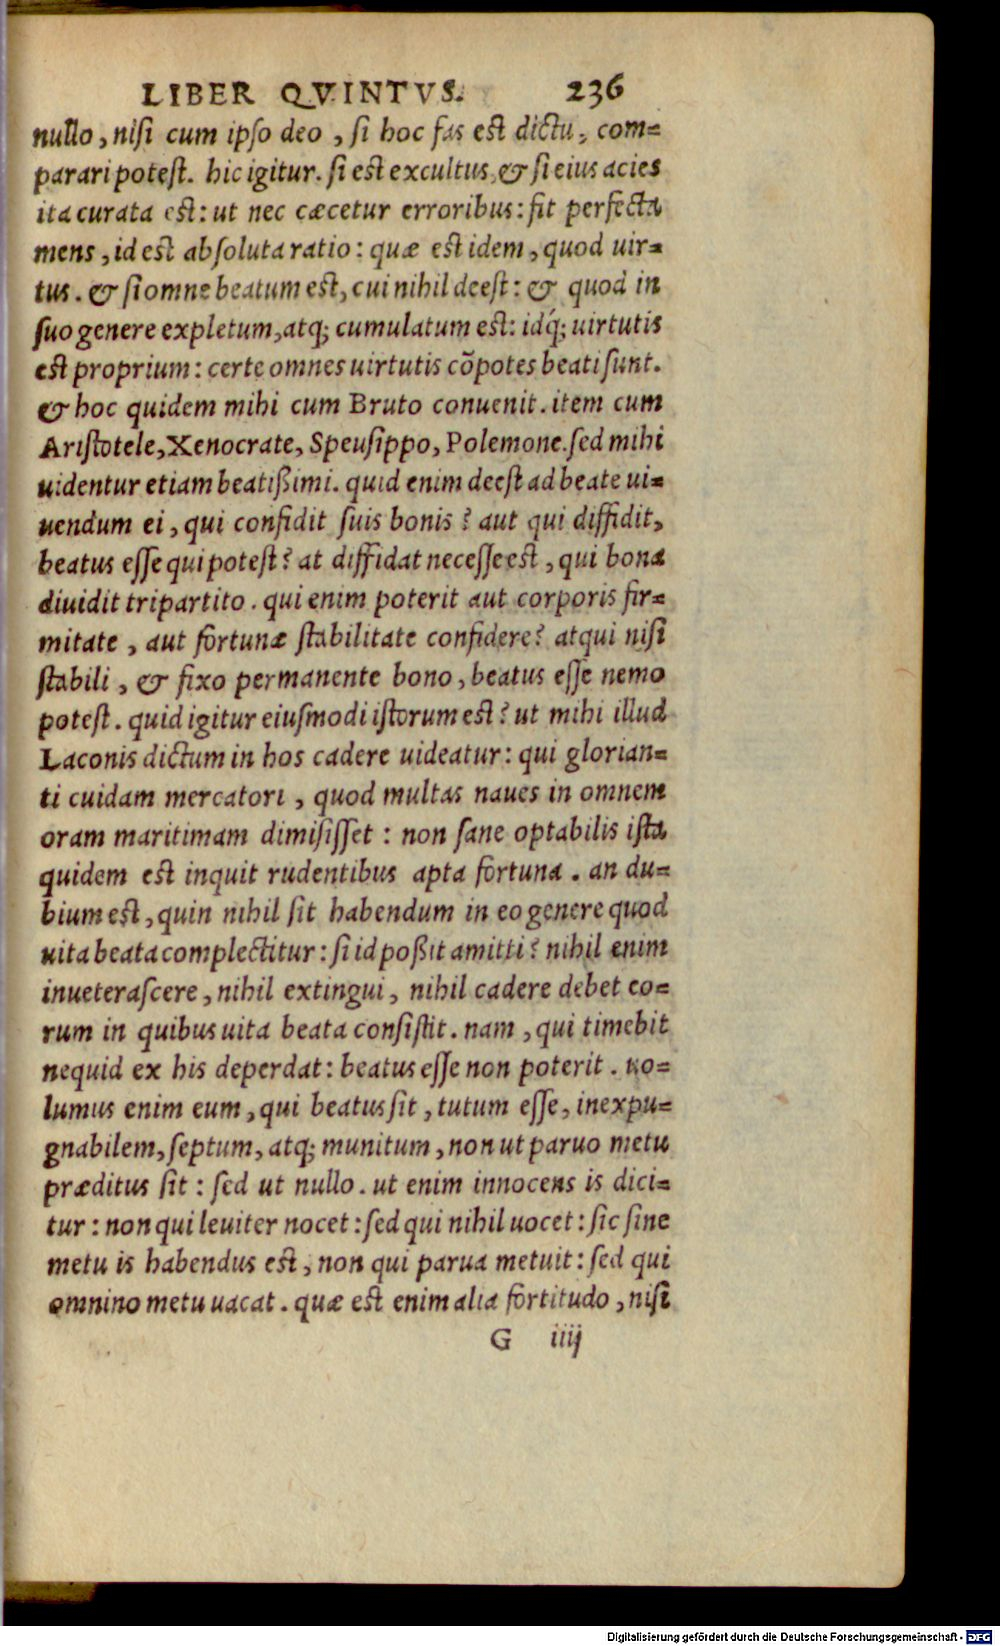 LIBER QVINTVS. 236
nullo, nisi cum ipso deo, si hoc fas est dictu, com=
parari potest. hic igitur. si est excultus, & si eius acies
ita curata est: ut nec cæcetur erroribus: fit perfecta
mens, id est absoluta ratio: quæ est idem, quod uir=
tus. & si omne beatum est, cui nihil deest: & quod in
suo genere expletum, atq; cumulatum est: idq́; uirtutis
est proprium: certe omnes uirtutis cõpotes beati sunt.
& hoc quidem mihi cum Bruto conuenit. item cum
Aristotele, Xenocrate, Speusippo, Polemone. sed mihi
uidentur etiam beatißimi. quid enim deest ad beate ui=
uendum ei, qui confidit suis bonis? aut qui diffidit,
beatus esse qui potest? at diffidat necesse est, qui bona
diuidit tripartito. qui enim poterit aut corporis fir=
mitate, aut fortunæ stabilitate confidere? atqui nisi
stabili, & fixo permanente bono, beatus esse nemo
potest. quid igitur eiusmodi istorum est? ut mihi illud
Laconis dictum in hos cadere uideatur: qui glorian=
ti cuidam mercatori, quod multas naues in omnem
oram maritimam dimisisset: non sane optabilis ista
quidem est inquit rudentibus apta fortuna. an du=
bium est, quin nihil sit habendum in eo genere quod
uita beata complectitur: si id poßit amitti? nihil enim
inueterascere, nihil extingui, nihil cadere debet eo=
rum in quibus uita beata consistit. nam, qui timebit
nequid ex his deperdat: beatus esse non poterit. uo=
lumus enim eum, qui beatus sit, tutum esse, inexpu=
gnabilem, septum, atq; munitum, non ut paruo metu
præditus sit: sed ut nullo. ut enim innocens is dici=
tur: non qui leuiter nocet: sed qui nihil uocet: sic sine
metu is habendus est, non qui parua metuit: sed qui
omnino metu uacat. quæ est enim alia fortitudo, nisi
G iiij
Digitalisierung gefördert durch die Deutsche Forschungsgemeinschaft - DFG